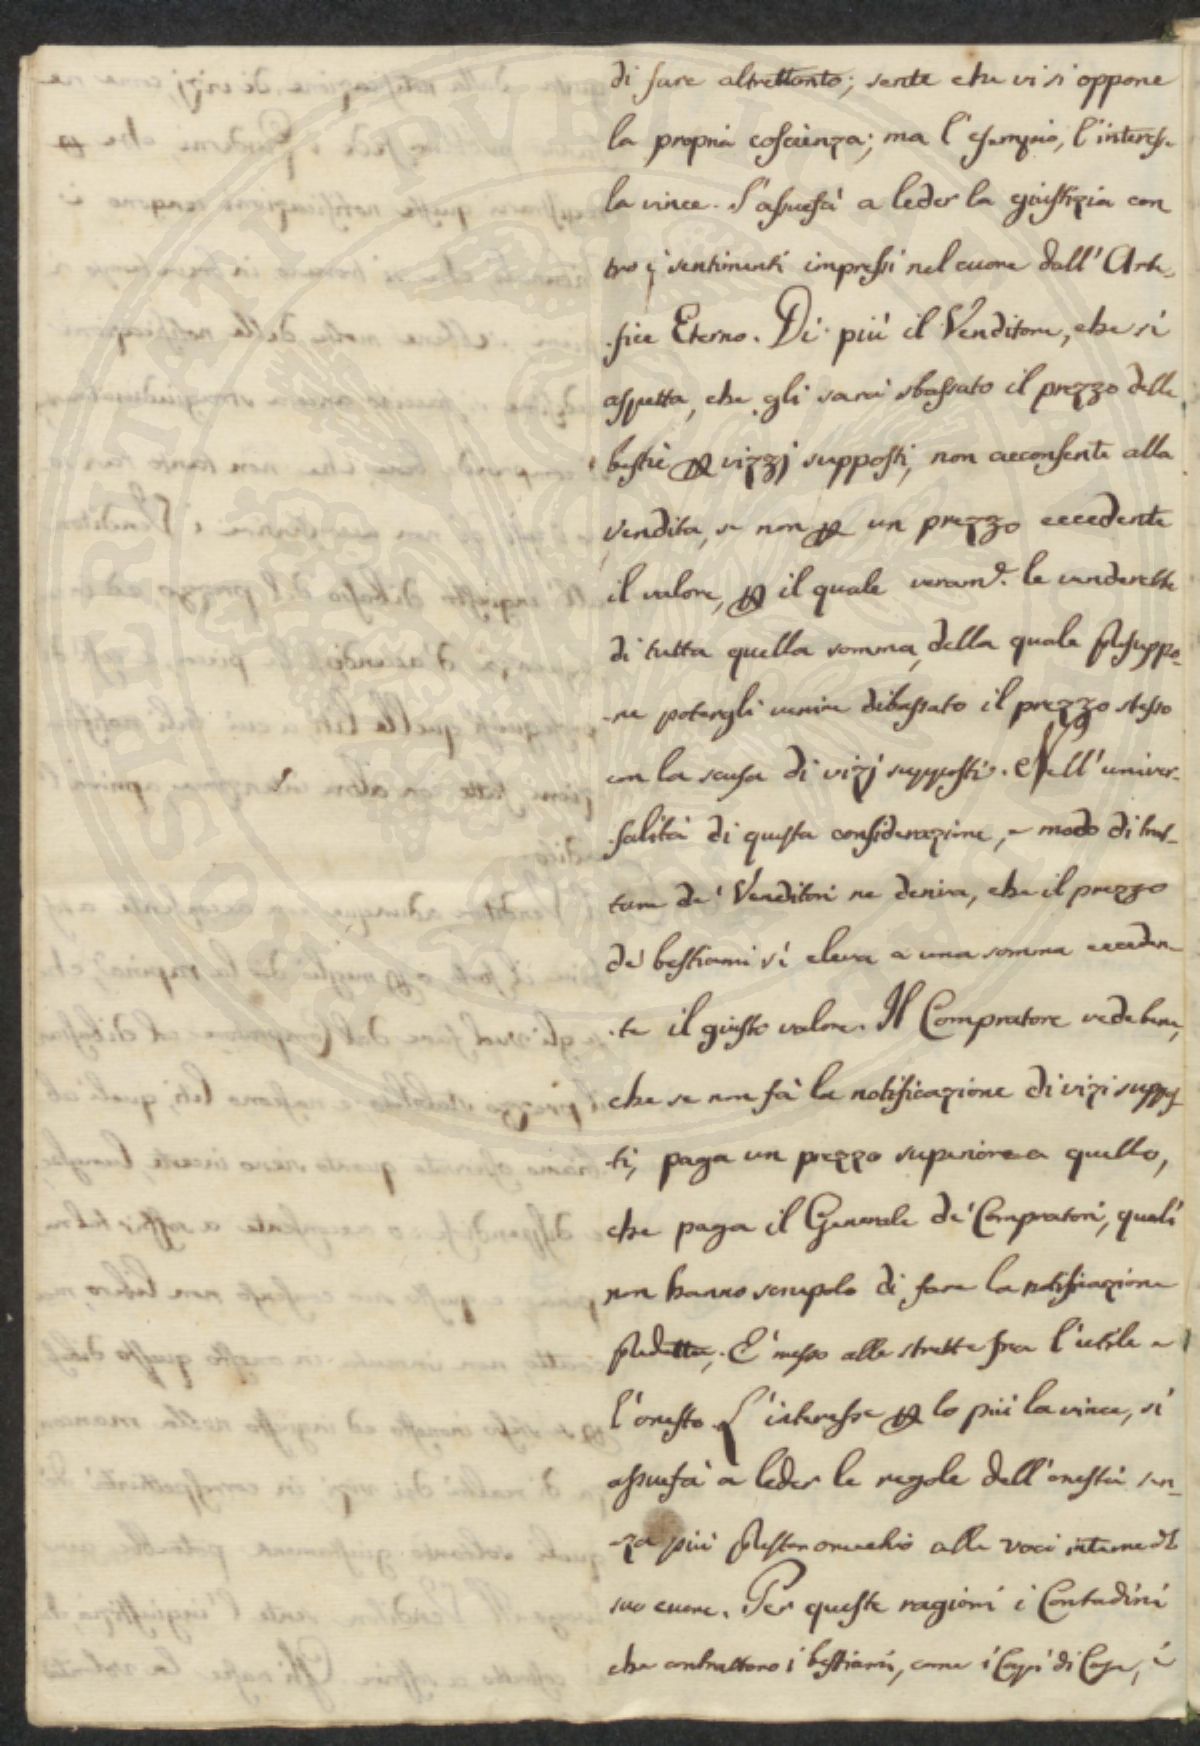 di fare altrettanto; sente che vi si oppone
la propria coscienza; ma l'esempio, l'interesse
la vince. S'assuefà a leder la giustizia con
tro i sentimenti impressi nel cuore dall'Arte-
-fice Eterno. Di più il Venditore, che si
aspetta, che gli sarà sbassato il prezzo delle
bestie ꝑ vizzj supposti, non acconsente alla
vendita, se non ꝑ un prezzo eccedente
il valore, ꝑ il quale veramᵉ. le venderebbe
di tutta quella somma, della quale ꝓsuppo-
-ne potergli venire dibassato il prezzo stesso
con la scusa di vizj supposti. Dall'univer-
-salità di questa considerazione, e modo di trat-
tare de' Venditori ne deriva, che il prezzo
de' bestiami si eleva a una somma ecceden-
-te il giusto valore. Il Compratore vede bene,
che se non fà la notificazione di vizi suppos
-ti, paga un prezzo superiore a quello,
che paga il Generale de' Compratori, quali
non hanno scrupolo di fare la notificazione
ꝓdetta; E' messo alle strette fra l'utile e
l'onesto. L'interesse ꝑ lo più la vince, si
assuefà a leder le regole dell'onestà sen-
-za più ꝓstar orecchio alle voci interne del
suo cuore. Per queste ragioni i Contadini
che contrattono i bestiami, come i Capi di Casa, e